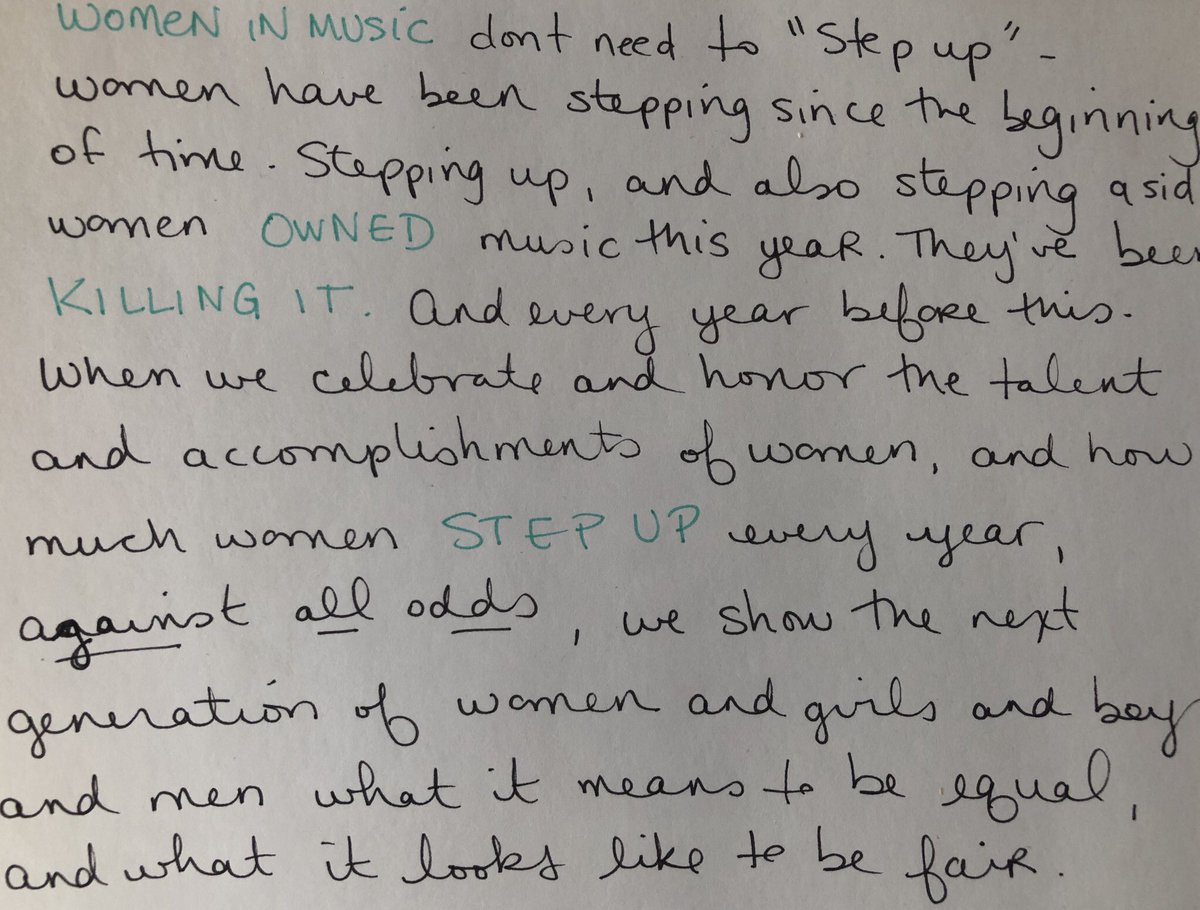 WOMEN IN MUSIC dont need to "Step up" -
women have been stepping since the beginning
of time. Stepping up, and also stepping asid
women OWNED music this year. They've been
KILLING IT. And every year before this.
When we celebrate and honor the talent
and accomplishments of women, and how
much women STEP UP every year,
against all odds, we show the next
generation of women and girls and boy
and men what it means to be equal,
and what it looks like to be fair.